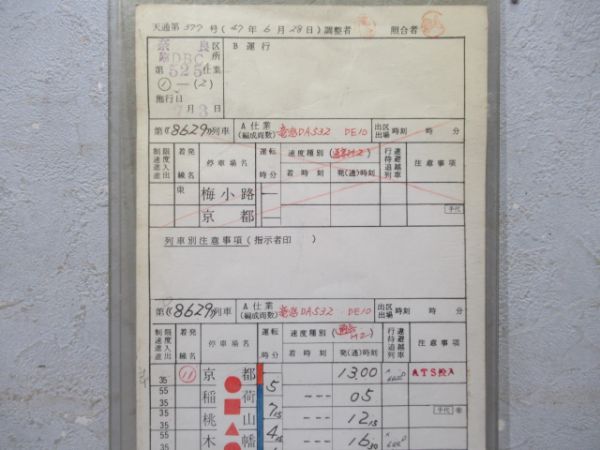 天通第 377 号 (47年 6月 28日) 調整者 照合者
奈良区所
DBC
第 525 仕業
①—(2)
施行日
月 3日
B 運行
第 8629 列車
A 仕業
(編成両数)
DA532 DE10
出区
出場 時刻 時 分
制限速度
進入進出
着発線名
停車場名
運転時分
速度種別
着時刻
発(通)時刻
行違
待避
追越
列車
注意事項
東 梅小路
京都
手代
列車別注意事項(指示者印 )
第 8629 列車
A 仕業
(編成両数)
DA532 DE10
出区
出場 時刻 時 分
制限速度
進入進出
着発線名
停車場名
運転時分
速度種別
着時刻
発(通)時刻
行違
待避
追越
列車
注意事項
35 11 京都 13.00 ATS投入
5
55
35 稲荷 --- 05
7 15
手代
55
35 桃山 --- 12 15
4 15
55
35 木幡 --- 16 30